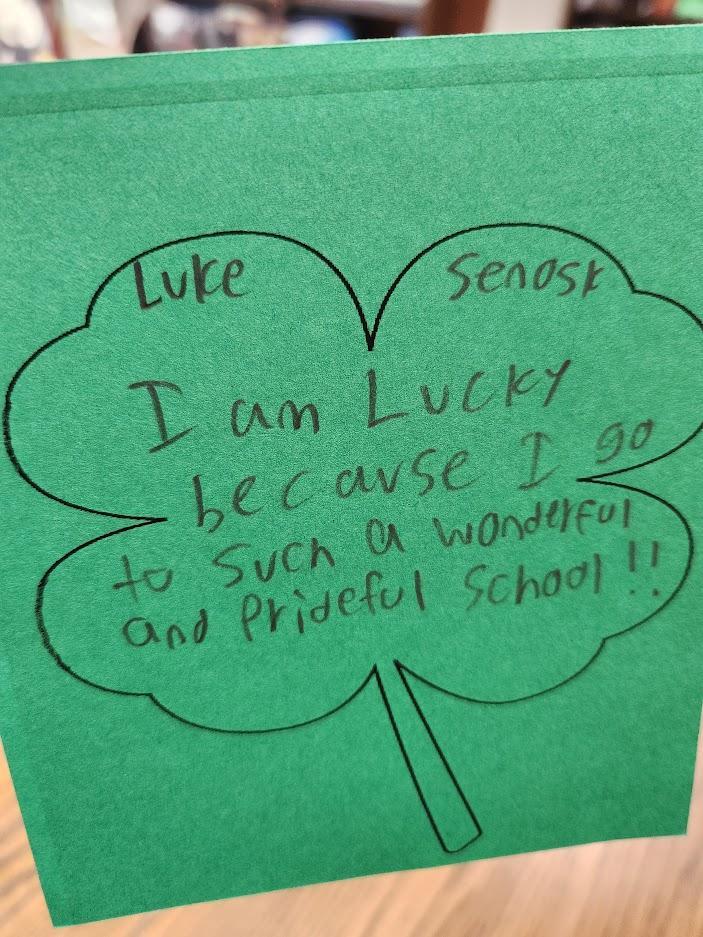 Luke Senosk
I am Lucky
because I go
to such a wonderful
and Prideful School!!